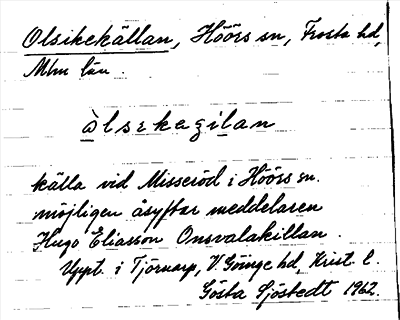 Olsikekällan, Höörs sn, Frosta hd,
Mlm län.
àlsɛkeʒilan
källa vid Misseröd i Höörs sn.
möjligen åsyftar meddelaren
Hugo Eliasson Onsvalakillan.
Uppt. i Tjörnarp, V. Göinge hd, Krist. l.
Gösta Sjöstedt 1962.